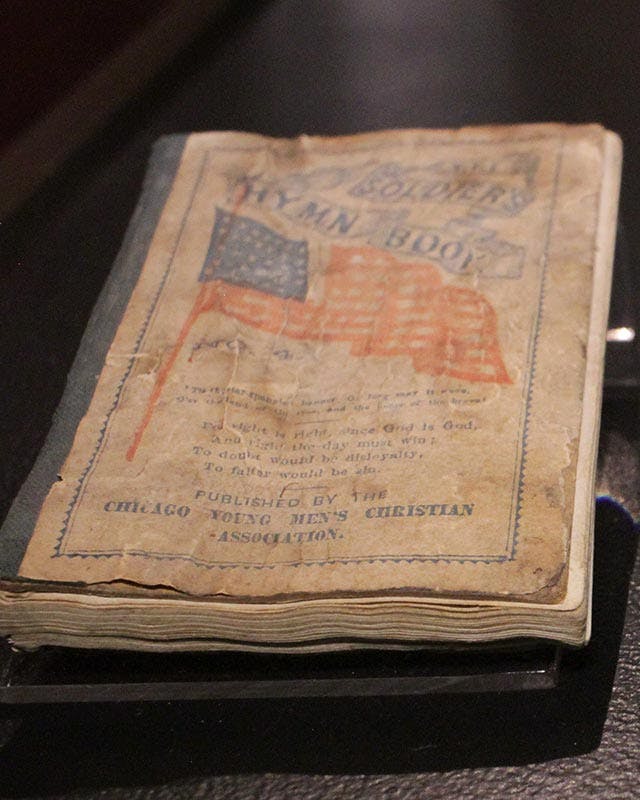 SOLDIER'S
HYMN BOOK
banner, O, long may it wave,
and the home of the brave!
For right is right, since God is God,
And right the day must win;
To doubt would be disloyalty,
To falter would be sin.
PUBLISHED BY THE
CHICAGO YOUNG MEN'S CHRISTIAN
ASSOCIATION.